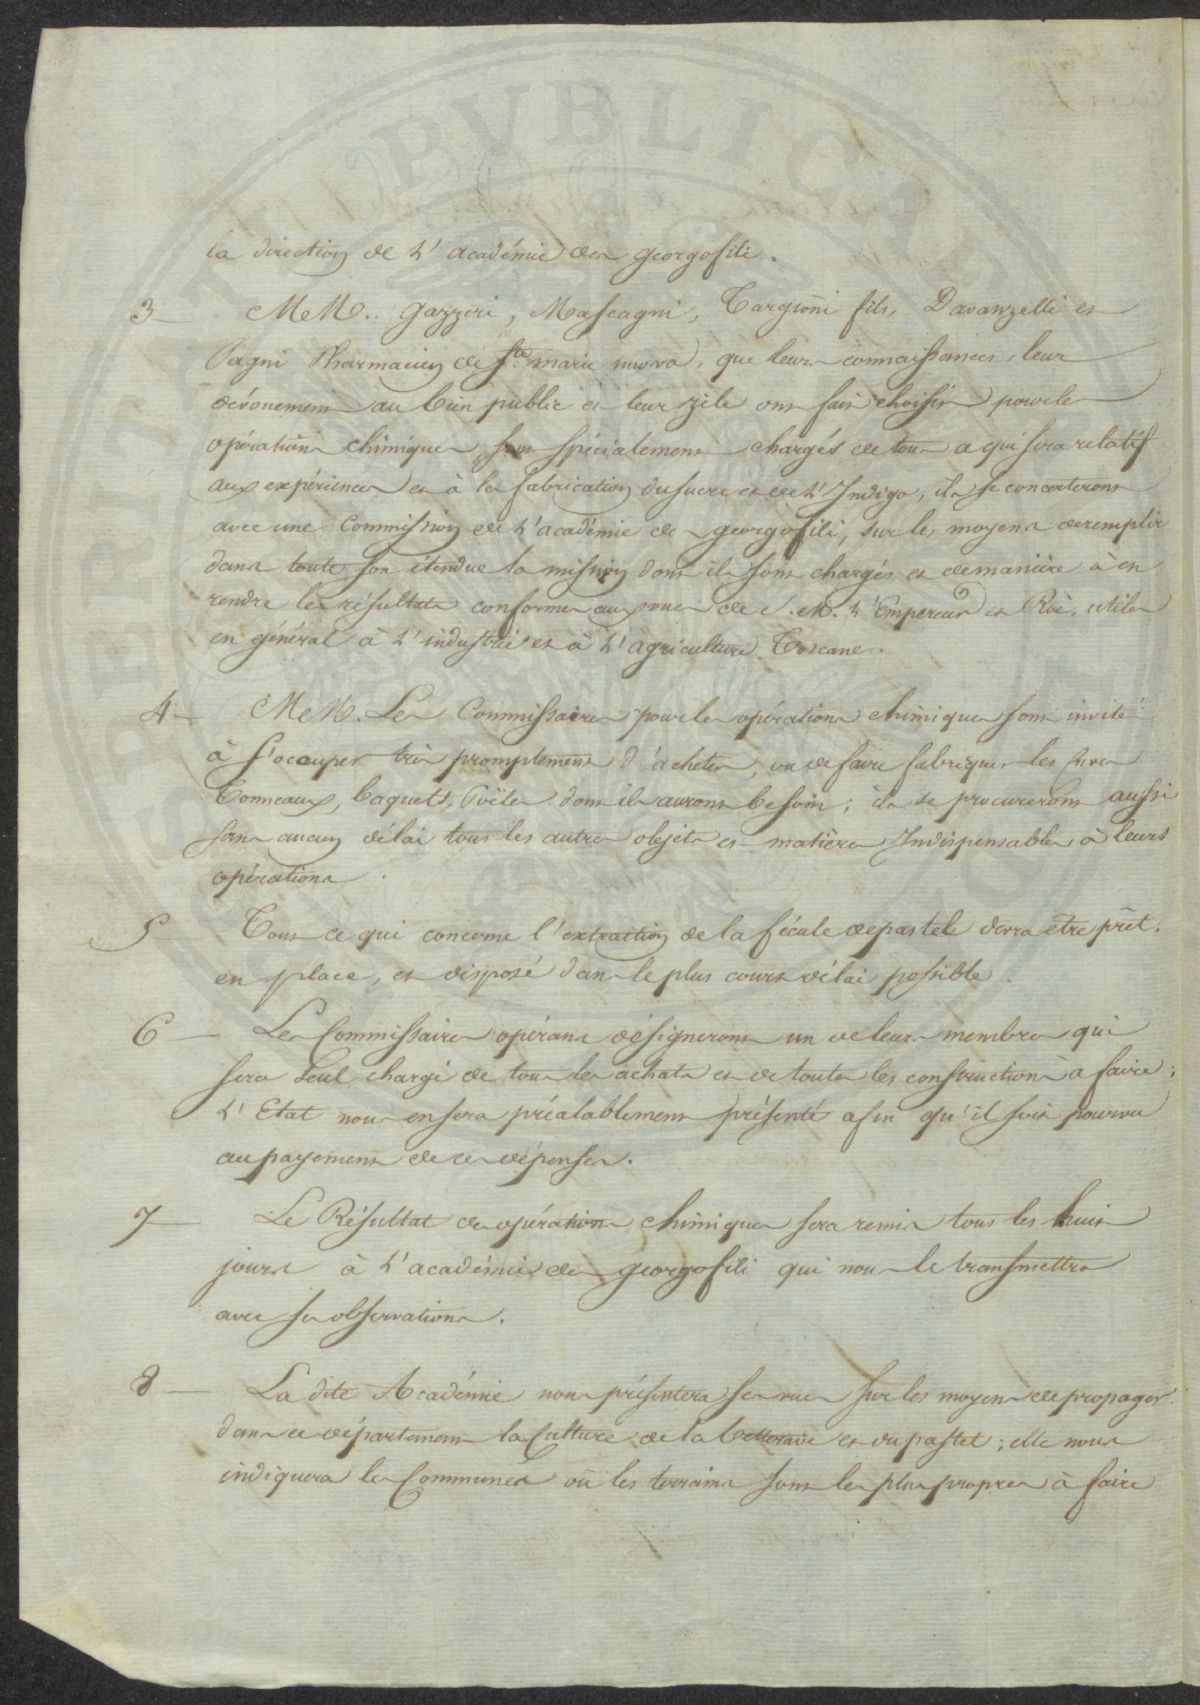 PVBLICA
la direction de L'académie des georgofili.
3 — MM. gazzeri, Mascagni, Targioni fils, Davanzelli et
Pagni Pharmacien de Ste marie nuova, que leurs connaissances, leur
dévouement au bien public et leur zèle ont fait choisir pour les
opérations chimiques, sont spécialement chargés de tout ce qui sera relatif
aux expériences et à la fabrication du sucre et de L'Indigo, ils se concerteront
avec une Commission de L'académie des georgofili, sur les moyens de remplir
dans toute son étendue la mission dont ils sont chargés et de manière à en
rendre les résultats conformes aux vues de S. M. L'Empereur et Roi, utiles
en général à L'industrie et à L'agriculture Toscane.
4 — MM. Les Commissaires pour les opérations chimiques sont invités
à s'occuper très promptement d'acheter, ou de faire fabriquer les
Tonneaux, baquets, Poëles dont ils auront besoin; ils se procureront aussi
sans aucun délai tous les autres objets et matières Indispensables à leurs
opérations.
5 — Tout ce qui concerne l'extraction de la fécule de pastel devra etre prêt,
en place, et disposé dans le plus court délai possible.
6 — Les Commissaires opérans désigneront un de leurs membres qui
sera seul chargé de tous les achats et de toutes les constructions à faire;
L'Etat nous en sera préalablement présenté afin qu'il soit pourvu
au payement de ces dépenses.
7 — Le Résultat des opérations chimiques sera remis tous les huit
jours à L'académie des georgofili qui nous le transmettra
avec ses observations.
8 — La dite Académie nous présentera ses vues sur les moyens de propager
dans ce département la Culture de la betterave et du pastel; elle nous
indiquera les Communes où les terrains sont les plus propres à faire